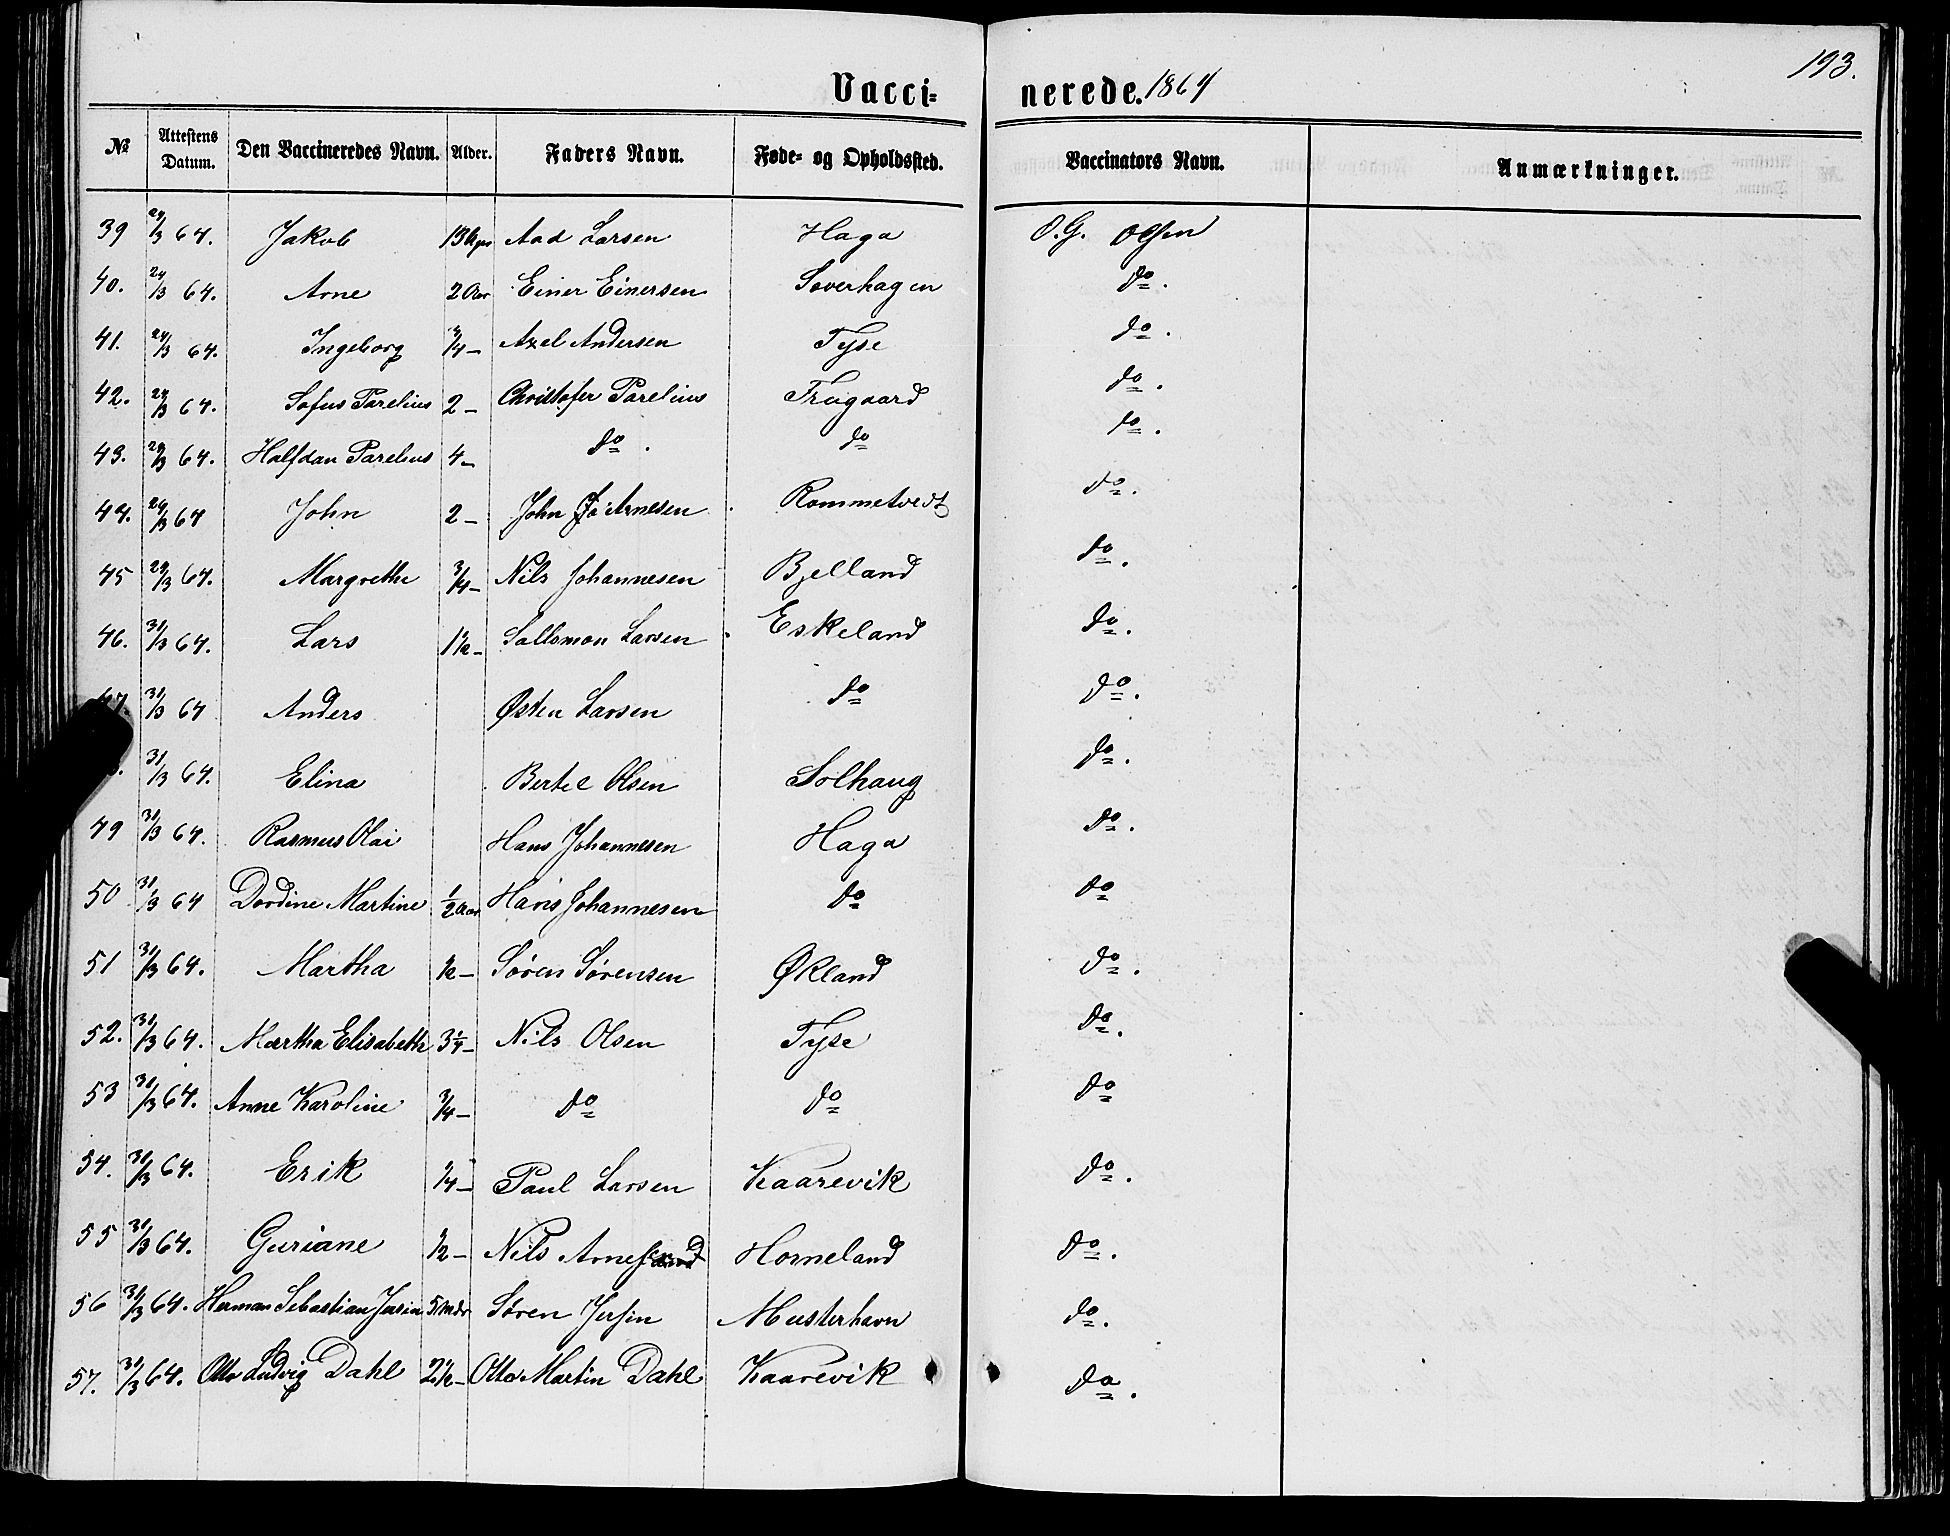 193.
Vacci= nerede. 1864
No Attestens Datum. Den Vaccineredes Navn. Alder. Faders Navn. Føde- og Opholdssted. Vaccinators Navn. Anmærkninger.
39 29/3 64. Jakob Aad Larsen Haga O.G. Olsen
40. 29/3 64. Arne 2 Aar Einer Einersen Soverhagen do.
41. 29/3 64. Ingeborg Axel Andersen Tyse do.
42. 29/3 64. Sofus Parelius 2 - Christofer Parelius Frugaard do.
43. 29/3 64. Halfdan Parelius 4 - do. do do.
44. 29/3 64 John 2 - John Arnesen Rommetvedt do.
45 29/3 64. Margrethe 3/4 - Nils Johannesen Bjelland do.
46. 31/3 64. Lars 1 1/2 - Sallomon Larsen Eskeland do.
47. 31/3 64 Anders Østen Larsen do do.
31/3 64. Elina Bertel Olsen Solhaug do.
49 31/3 64. Rasmus Olai Hans Johannesen Haga do.
50 31/3 64 Dordine Martine 1/2 Aar Hans Johannesen do do
51 31/3 64. Martha 1/2 - Søren Sørensen Økland do.
52. 31/3 64. Martha Elisabeth 3 1/4 - Nils Olsen Tyse do.
53 31/3 64. Anne Karoline 3/4 - do do do
54. 31/3 64. Erik 1/4 - Paul Larsen Kaarevik do.
55 31/3 64. Guriane 1/2 - Nils Horneland do.
56 31/3 64. Herman Sebastian Jersin 5 Mdr Søren Jersin Musterhavn do.
57. 31/3 64. Otto Ludvig Dahl 2 1/2 - Otto Martin Dahl Kaarevik do.